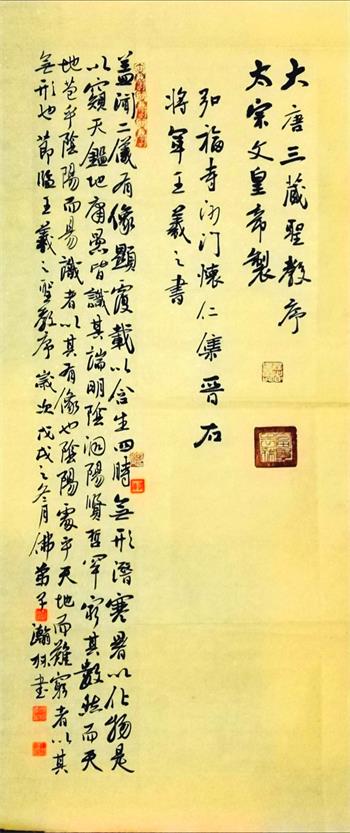 大唐三藏聖教序
太宗文皇帝製
弘福寺沙門懷仁集晉右
將軍王羲之書
蓋聞二儀有像顯覆載以含生四時無形潛寒暑以化物是
以窺天鑑地庸愚皆識其端明陰洞陽賢哲罕窮其數然而天
地苞乎陰陽而易識者以其有像也陰陽處乎天地而難窮者以其
無形也節臨王羲之聖教序歲次戊戌之冬月佛弟子瀚書